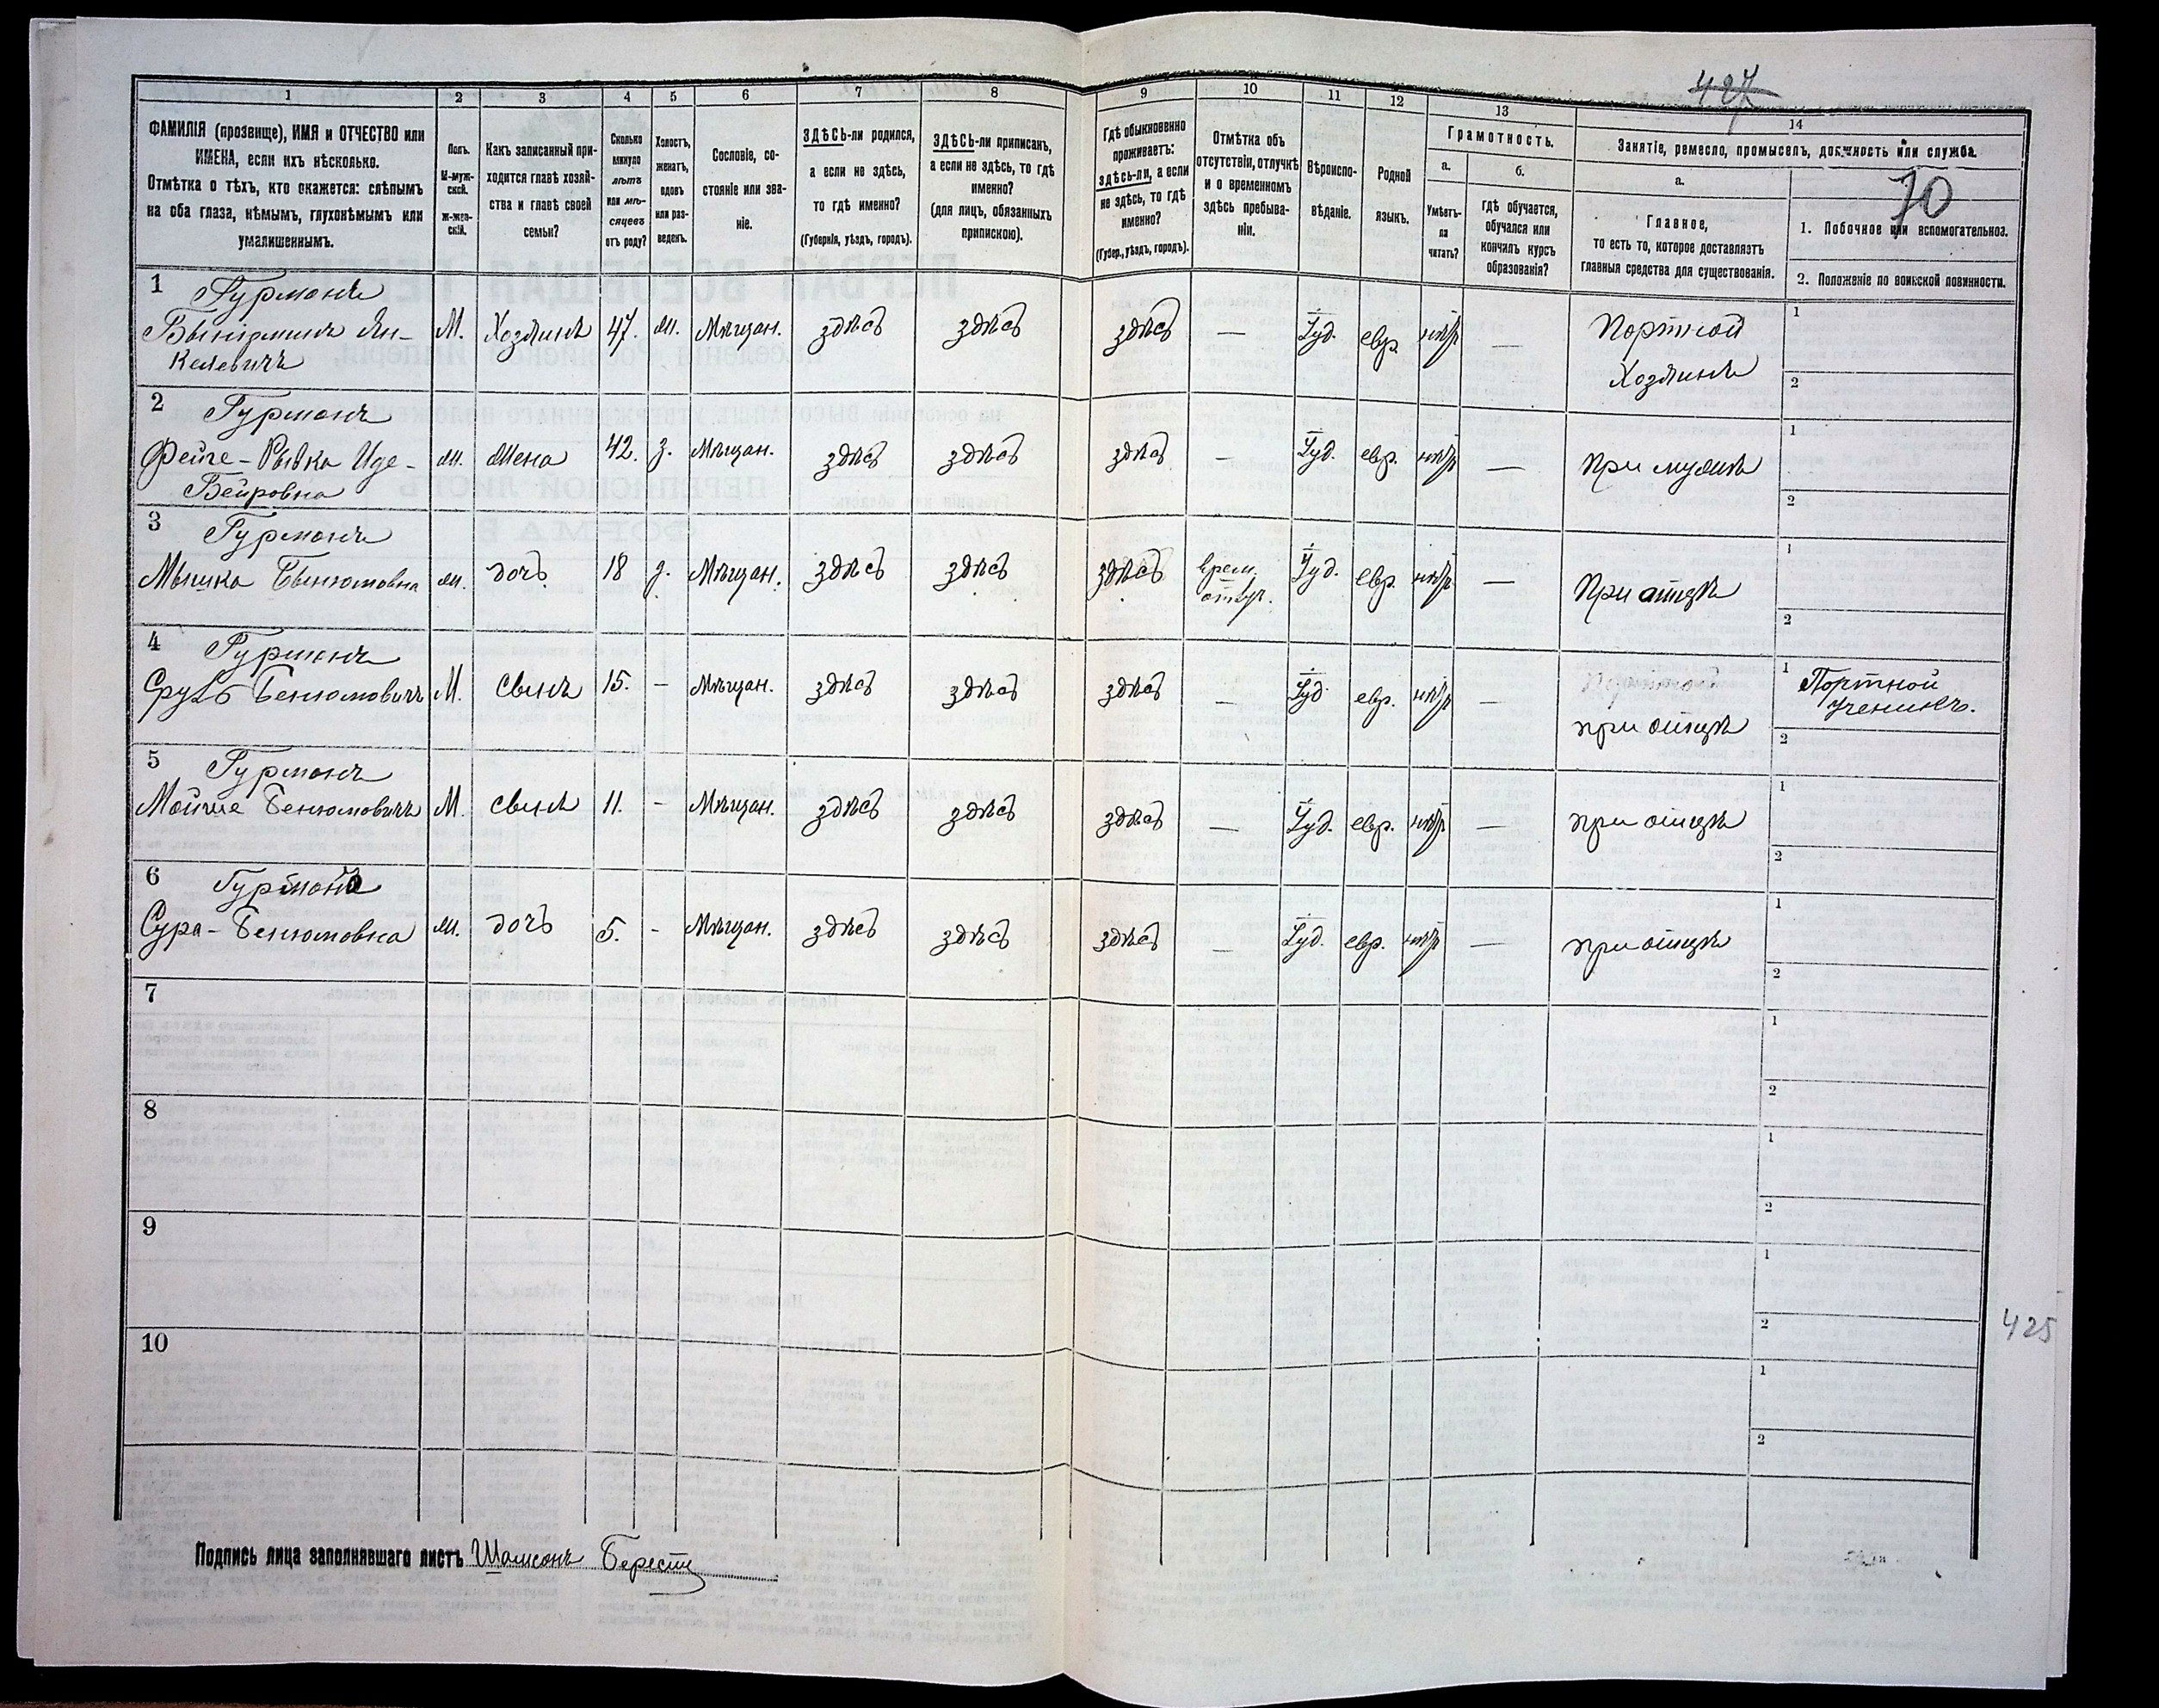 427
70
1 2 3 4 5 6 7 8 9 10 11 12 13 14
ФАМИЛІЯ (прозвище), ИМЯ и ОТЧЕСТВО или
ИМЕНА, если ихъ нѣсколько.
Отмѣтка о тѣхъ, кто окажется: слѣпымъ
на оба глаза, нѣмымъ, глухонѣмымъ или
умалишеннымъ.
Полъ.
М-муж-
ской.
Ж-жен-
скій.
Какъ записанный при-
ходится главѣ хозяй-
ства и главѣ своей
семьи?
Сколько
минуло
лѣтъ
или мѣ-
сяцевъ
отъ роду?
Холостъ,
женатъ,
вдовъ
или раз-
веденъ.
Сословіе, со-
стояніе или зва-
ніе.
ЗДѢСЬ-ли родился,
а если не здѣсь,
то гдѣ именно?
(Губернія, уѣздъ, городъ).
ЗДѢСЬ-ли приписанъ,
а если не здѣсь, то гдѣ
именно?
(для лицъ, обязанныхъ
припискою).
Гдѣ обыкновенно
проживаетъ:
здѣсь-ли, а если
не здѣсь, то гдѣ
именно?
(Губер., уѣздъ, городъ).
Отмѣтка объ
отсутствіи, отлучкѣ
и о временномъ
здѣсь пребыва-
ніи.
Вѣроиспо-
вѣданіе.
Родной
языкъ.
Грамотность.
а.
Умѣетъ-
ли
читать?
б.
гдѣ обучается,
обучался или
кончилъ курсъ
образованія?
Занятіе, ремесло, промыселъ, должность или служба.
а.
Главное,
то есть то, которое доставляетъ
главныя средства для существованія.
1. Побочное или вспомогательное.
2. Положеніе по воинской повинности.
1 Гурманъ
Беніаминъ Ян- М. Хозяинъ 47. ж. Мѣщан. здѣсь здѣсь здѣсь — Іуд. евр. нѣтъ — Портной
келевичъ Хозяинъ
1
2
2 Гурманъ
Фейге-Рывка Иде- ж. Жена 42. з. Мѣщан. здѣсь здѣсь здѣсь — Іуд. евр. нѣтъ — При мужѣ
Бейровна
1
2
3 Гурманъ
Бенюмовна ж. дочь 18 д. Мѣщан. здѣсь здѣсь здѣсь врем. Іуд. евр. нѣтъ — При отцѣ
отлуч.
1
2
4 Гурманъ
Сруль Бенюмовичъ М. Сынъ 15. - Мѣщан. здѣсь здѣсь здѣсь — Іуд. евр. нѣтъ — Портной
при отцѣ
1 Портной
ученикъ.
2
5 Гурманъ
Мойше Бенюмовичъ М. сынъ 11. - Мѣщан. здѣсь здѣсь здѣсь — Іуд. евр. нѣтъ — при отцѣ
1
2
6 Гурманъ
Сура-Бенюмовна ж. дочь 5. - Мѣщан. здѣсь здѣсь здѣсь — Іуд. евр. нѣтъ — при отцѣ
1
2
7
1
2
8
1
2
9
1
2
10
1
2
425
Подпись лица заполнявшаго листъ Шамсонъ